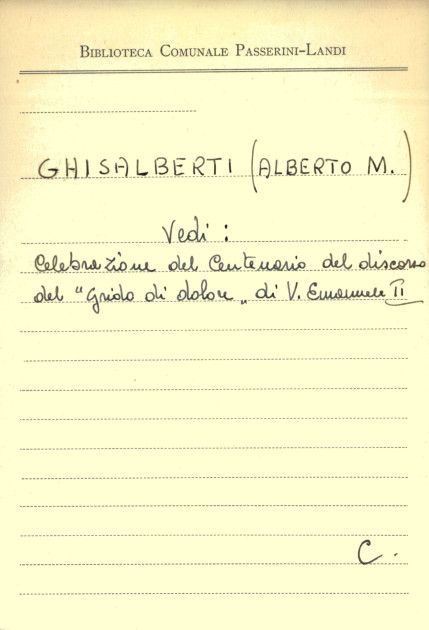 BIBLIOTECA COMUNALE PASSERINI-LANDI
GHISALBERTI (ALBERTO M.)
Vedi :
Celebrazione del Centenario del discorso
del "Grido di dolore„ di V. Emanuele II
C.